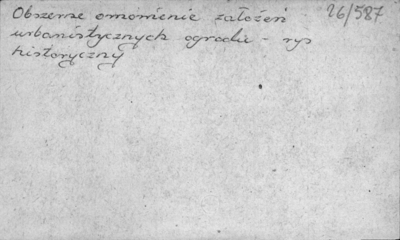 Obszerne omównienie założeń 26/587
urbanistycznych ogrodu - rys
historyczny